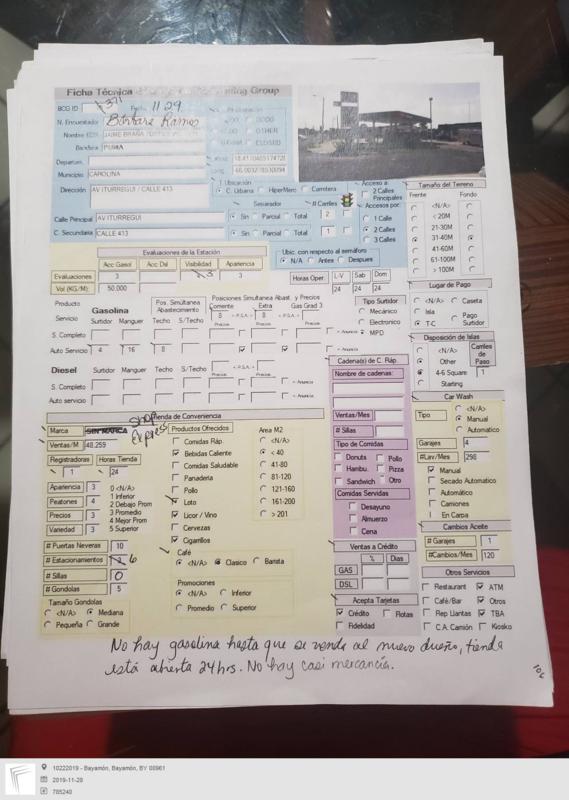 Ficha Técnica
BCG ID 371 Fecha 11-29
N. Encuestador Bárbara Ramos
Nombre EDS
Bandera PUMA
OTHER
CLOSED
Departum.
Municipio CAROLINA
Dirección AV ITURREGUI / CALLE 413
Calle Principal AV ITURREGUI
C. Secundaria CALLE 413
Ubicación
C. Urbana HiperMerc Carretera
Separador # Carriles
Sin Parcial Total 2
Sin Parcial Total 1
Acceso a
2 Calles Principales
Accesos por:
1 Calle
2 Calles
3 Calles
Tamaño del Terreno
Frente Fondo
<N/A>
< 20M
21-30M
31-40M
41-60M
61-100M
> 100M
Evaluaciones de la Estación
Acc Gasol Acc Dsl Visibilidad Apariencia
Evaluaciones 3 3
Vol (KG/M) 50,000
Ubic. con respecto al semáforo
N/A Antes Despues
Horas Oper. L-V Sab Dom
24 24 24
Lugar de Pago
<N/A> Caseta
Isla Pago Surtidor
T-C
Producto
Gasolina
Surtidor Manguer
Pos. Simultánea Abastecimiento
Techo S/Techo
Posiciones Simultanea Abast. y Precios
Corriente Extra Gas Grad 3
8 < P.S.A. > 8 < P.S.A. >
Precios Precios Precios
S. Completo < Anuncia
Auto Servicio 4 16 8 < Anuncia
Tipo Surtidor
Mecánico
Electronico
MPD
Diesel Surtidor Manguer Techo S/Techo < P.S.A.
Precios
S. Completo < Anuncia
Auto servicio < Anuncia
Disposición de Islas
<N/A>
Other
4-6 Square
Starting
Carriles de Paso
1
Cadena(s) de C. Ráp.
Nombre de cadenas:
Ventas/Mes
# Sillas
Tipo de Comidas
Donuts Pollo
Hambu. Pizza
Sandwich Otro
Comidas Servidas
Desayuno
Almuerzo
Cena
Car Wash
Tipo <N/A>
Manual
Automatico
Garajes 4
#Lav/Mes 298
Manual
Secado Automatico
Automático
Camiones
En Carpa
Cambios Aceite
# Garajes 1
#Cambios/Mes 120
Tienda de Conveniencia
Marca SIN MARCA Shop Express
Ventas/M 48,259
Registradoras Horas Tienda
1 24
Apariencia 3
Peatones 4
Precios 3
Variedad 3
0 <N/A>
1 Inferior
2 Debajo Prom
3 Promedio
4 Mejor Prom
5 Superior
# Puertas Neveras 10
# Estacionamientos 6
# Sillas 0
# Gondolas 5
Tamaño Gondolas
<N/A> Mediana
Pequeña Grande
Productos Ofrecidos
Comidas Ráp.
Bebidas Caliente
Comidas Saludable
Panaderia
Pollo
Loto
Licor / Vino
Cervezas
Cigarrillos
Area M2
<N/A>
< 40
41-80
81-120
121-160
161-200
> 201
Café
<N/A> Clasico Barista
Promociones
<N/A> Inferior
Promedio Superior
Ventas a Crédito
% Dias
GAS
DSL
Acepta Tarjetas
Crédito Flotas
Fidelidad
Otros Servicios
Restaurant ATM
Café/Bar Otros
Rep Llantas TBA
C.A. Camión Kiosko
No hay gasolina hasta que se venda al nuevo dueño, tienda
está abierta 24 hrs. No hay casi mercancía.
106
10222019 - Bayamón, Bayamón, BY 00961
2019-11-29
785240